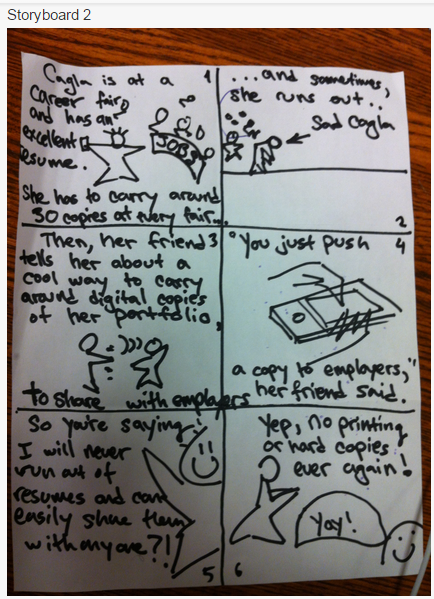 Storyboard 2
Cagla is at a
career fair,
and has an
excellent
resume.
JOBS
She has to carry around
30 copies at every fair...
1
...and sometimes,
she runs out..
Sad Cagla
2
Then, her friend
tells her about a
cool way to carry
around digital copies
of her portfolio,
to share with employers
3
"You just push
a copy to employers,"
her friend said.
4
So you're saying
I will never
run out of
resumes and can
easily share them
with anyone?!
5
Yep, no printing
or hard copies
ever again!
Yay!
6